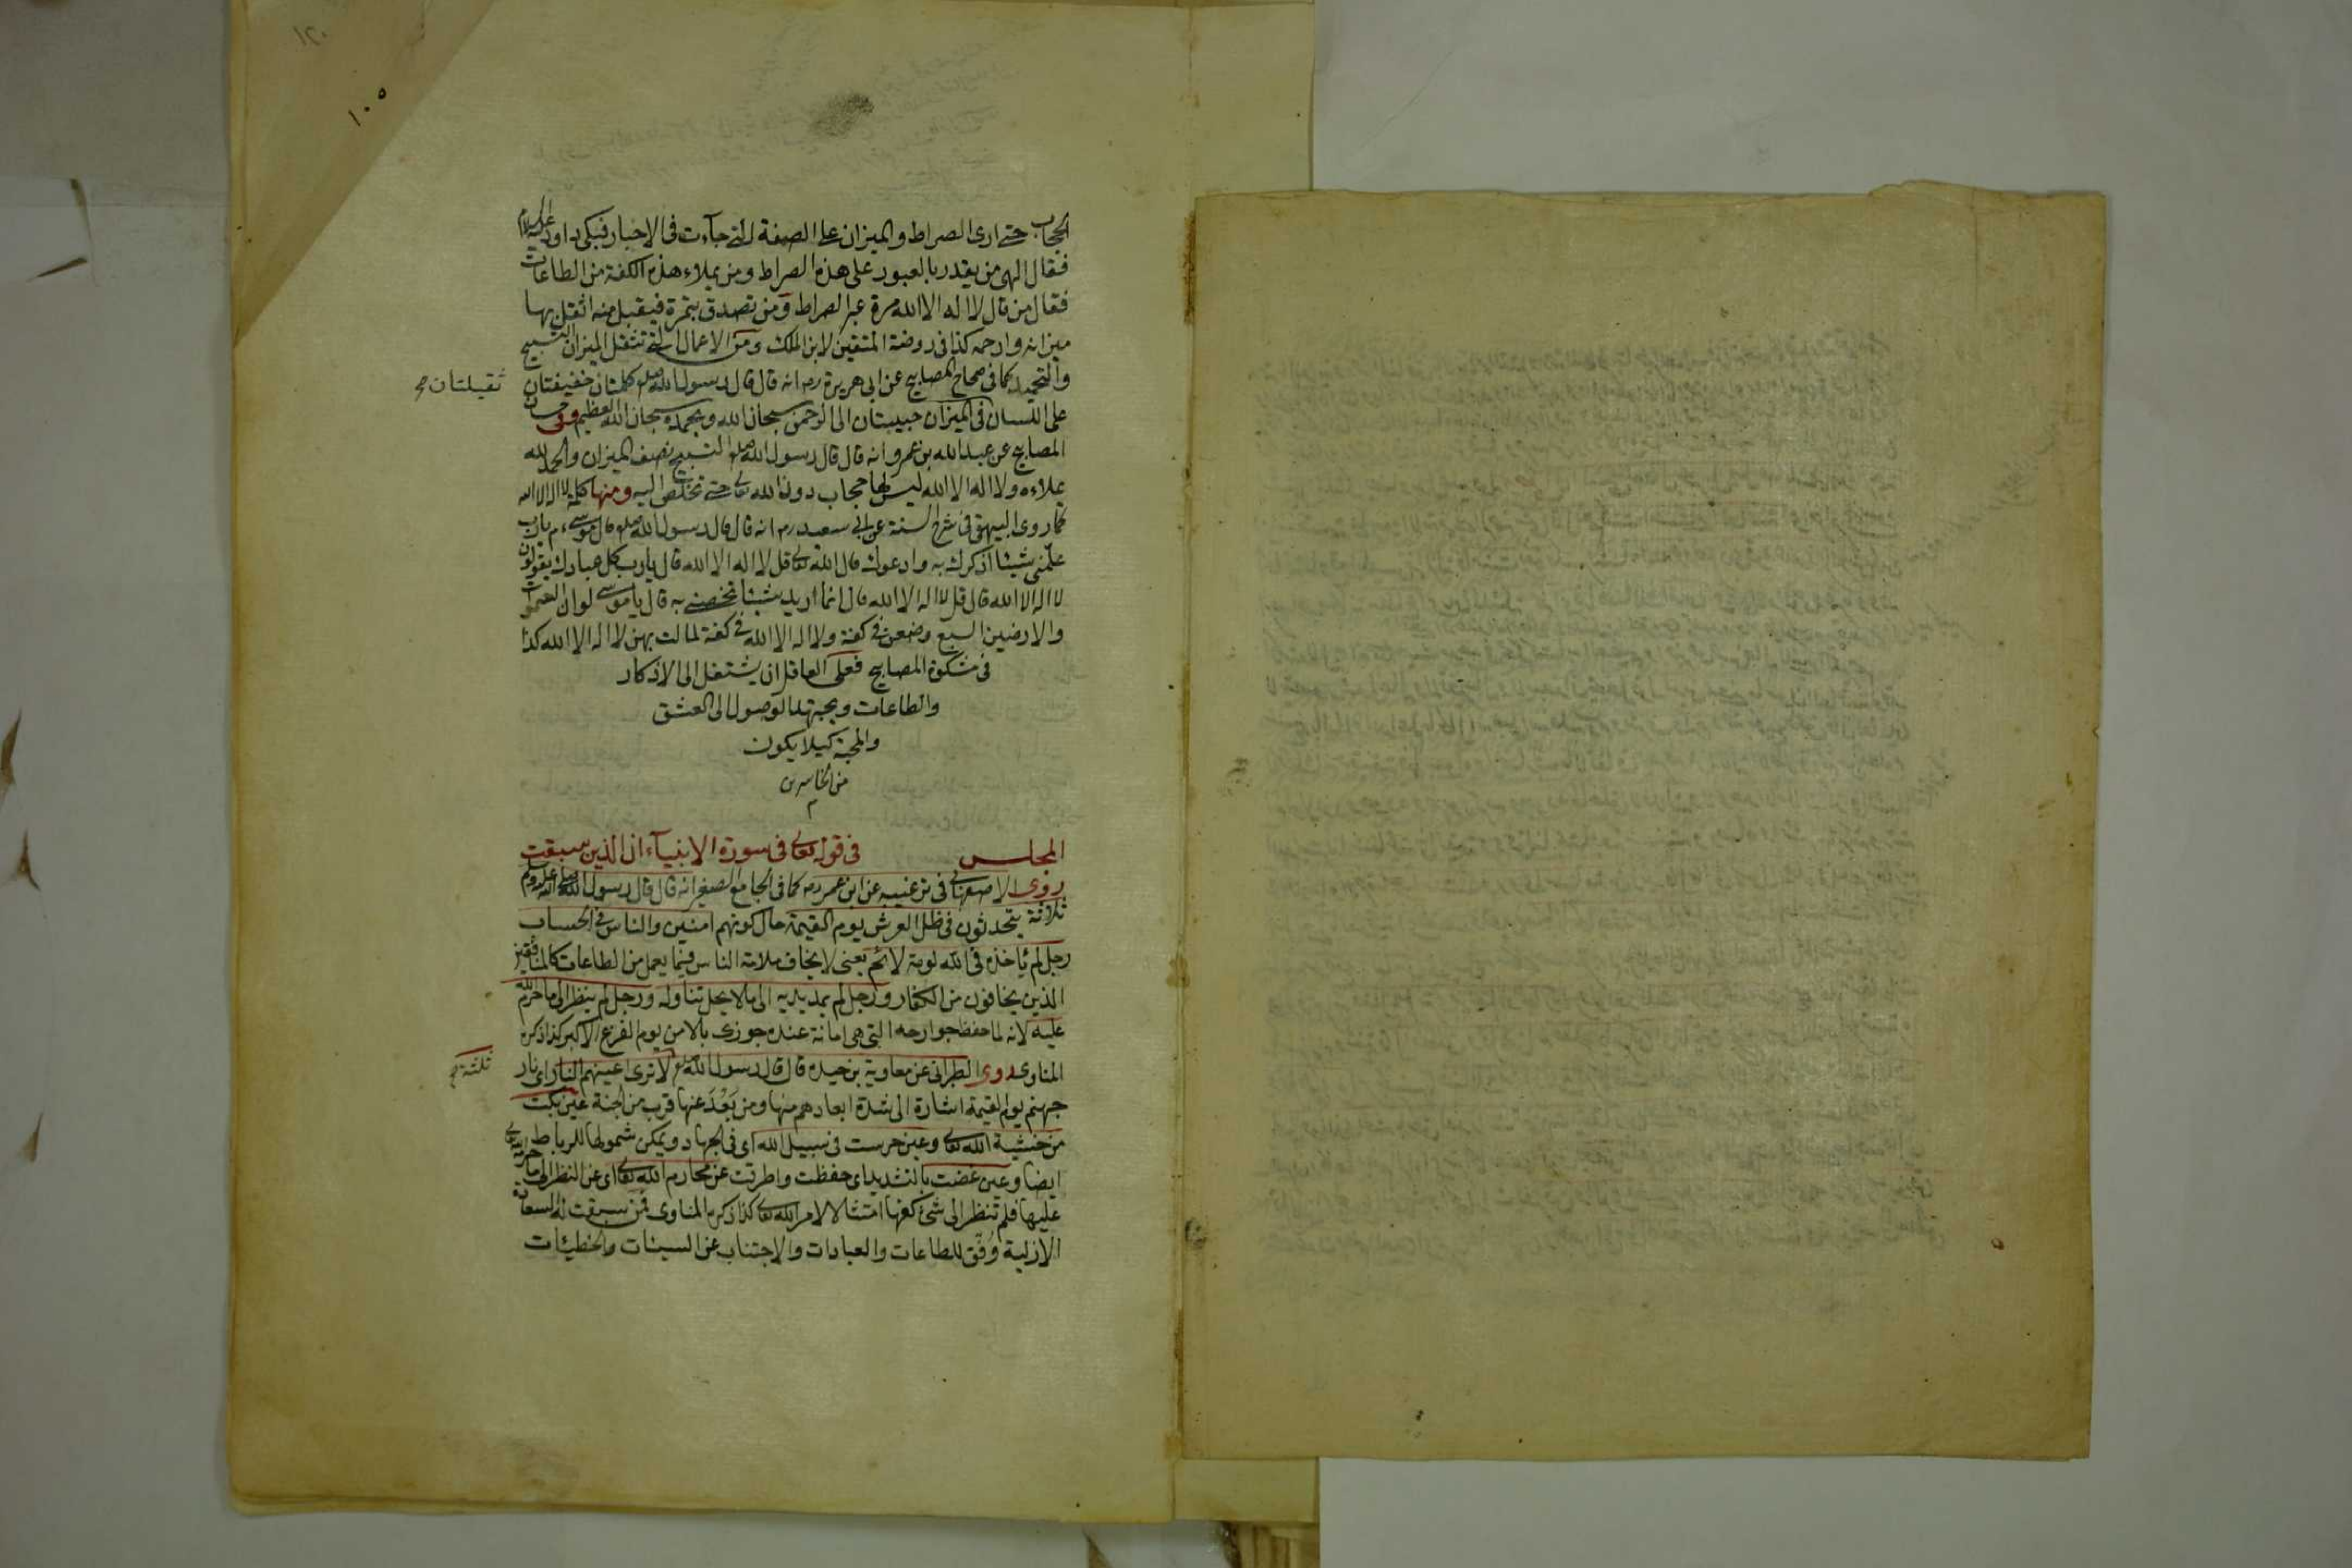 ١٢٠
١٠٥
الحجاب حتى ارى الصراط والميزان على الصفة التى جآءت فى الاخبار فبكى داود عليه السلام
فقال الهى من يقدر بالعبور على هذه الصراط ومن يملاء هذه الكفة من الطاعات
فقال من قال لا اله الا الله مرة عبر الصراط ومن تصدق بتمرة فيقبل منه اثقل بها
ميزانه وارحمه كذا فى روضة المتقين لابن الملك ومن الاعمال التى تثقل الميزان التسبيح
والتحميد كما فى صحاح المصابيح عن ابى هريرة رضه انه قال قال رسول الله صلعم كلمتان خفيفتان
ثقيلتان صح
على اللسان فى الميزان حبيبتان الى الرحمن سبحان الله وبحمده سبحان الله العظيم وفى حسان
المصابيح عن عبد الله بن عمرو انه قال قال رسول الله صلعم التسبيح نصف الميزان والحمد لله
يملاءه ولا اله الا الله ليس لها حجاب دون الله تعالى حتى تخلص اليه ومنها كلمة لا اله الا الله
كما روى البيهقى فى شرح السنة عن ابى سعيد رضه انه قال قال رسول الله صلعم قال موسى ءم يا رب
علّمنى شيئا اذكرك به وادعوك قال الله تعالى قل لا اله الا الله قال يا رب كل عبادك يقولون
لا اله الا الله قال قل لا اله الا الله قال انما اريد شيئا تخصنى به قال يا موسى لو ان السموات
والارضين السبع وضعن فى كفة ولا اله الا الله فى كفة لمالت بهن لا اله الا الله كذا
فى مشكوة المصابيح فعلى العاقل ان يشتغل الى الاذكار
والطاعات ويجتهد الوصول الى العشق
والمحبة كيلا يكون
من الخاسرين
م
المجلس فى قوله تعالى فى سورة الانبيآء ان الذين سبقت
روى الاصفهانى فى ترغيبه عن ابن عمر رضه كما فى الجامع الصغير انه قال قال رسول الله صلى الله عليه وسلم
ثلاثة يتحدثون فى ظل العرش يوم القيمة حال كونهم امنين والناس فى الحساب
رجل لم يأخذه فى الله لومة لائم يعنى لا يخاف ملامة الناس فيما يعمل من الطاعات كالمنافقين
الذين يخافون من الكفار ورجل لم يمد يديه الى ما لا يحل تناوله ورجل لم ينظر الى ما حرم الله
عليه لانه لما حفظ جوارحه التى هى امانة عنده جوزى بالامن يوم الفزع الاكبر كذا ذكره
المناوى روى الطبرانى عن معاوية بن حيده قال قال رسول الله صلعم لا ترى اعينهم النار اى نار
ثلثة صح
جهنم يوم القيمة اشارة الى شدة ابعادهم منها ومن بَعُدَ عنها قرب من الجنة عين بكت
من خشية الله تعالى وعين حرست فى سبيل الله اى فى الجهاد ويمكن شمولها للرباط
ايضا وعين غضت بالتشديد اى حفظت واطرقت عن محارم الله تعالى اى عن النظر الى ما حرمه الله تعالى
عليها فلم تنظر الى شئ كفها امتثالا لامر الله تعالى كذا ذكره المناوى فمن سبقت له السعادة
الازلية وُفّق للطاعات والعبادات والاجتناب عن السيئات والخطيئات